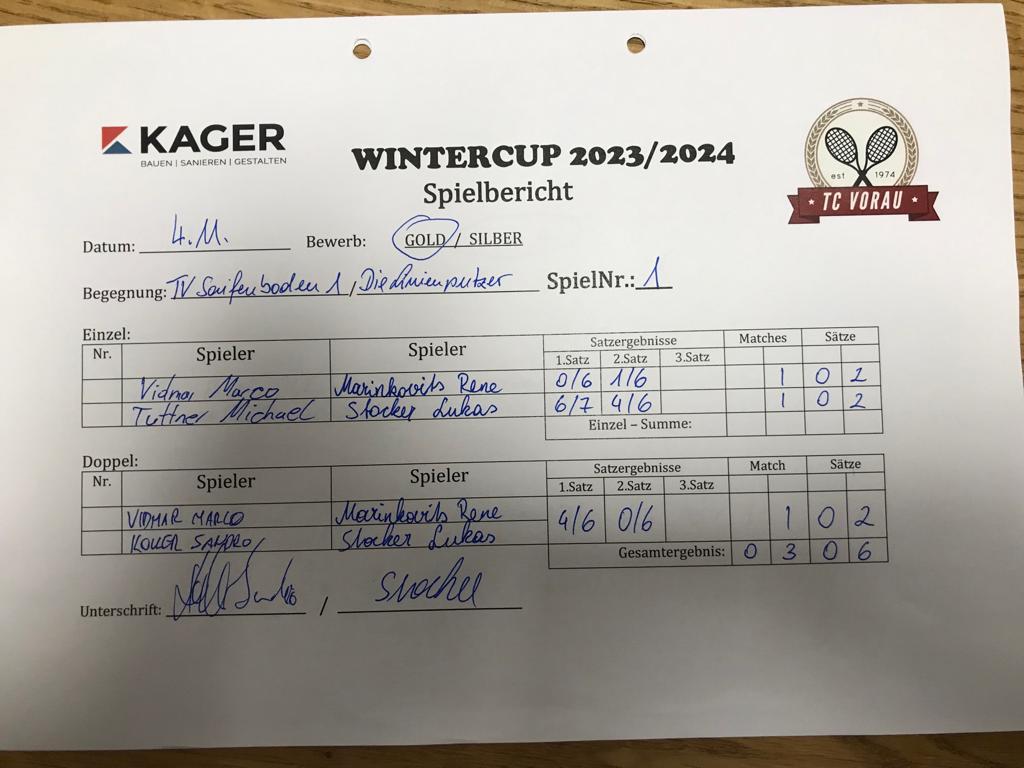 KAGER
BAUEN | SANIEREN | GESTALTEN
WINTERCUP 2023/2024
Spielbericht
est 1974
TC VORAU
Datum: 4.11. Bewerb: GOLD / SILBER
Begegnung: TV Saifenboden 1 / Die Linienputzer SpielNr.: 1
Einzel:
Nr. Spieler Spieler Satzergebnisse Matches Sätze
1.Satz 2.Satz 3.Satz
Vidmar Marco Marinkovits Rene 0/6 1/6 1 0 2
Tuttner Michael Stocker Lukas 6/7 4/6 1 0 2
Einzel – Summe:
Doppel:
Nr. Spieler Spieler Satzergebnisse Match Sätze
1.Satz 2.Satz 3.Satz
VIDMAR MARCO Marinkovits Rene 4/6 0/6 1 0 2
KOLLER SANDRO Stocker Lukas
Gesamtergebnis: 0 3 0 6
Unterschrift: / Stocker